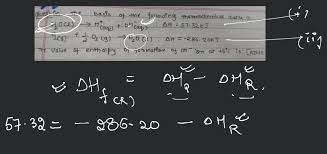 the basis of the following thermochemical data
(i)
H₂O(l) → H⁺(aq) + OH⁻(aq) ; ΔH = 57.32 kJ
H₂(g) + ½ O₂(g) → H₂O(l) ; ΔH = -286.20 kJ
(ii)
The value of enthalpy of formation of OH⁻ ion at 25°C is
ΔH_f = ΔH_P - ΔH_R
57.32 = -286.20 - ΔH_R